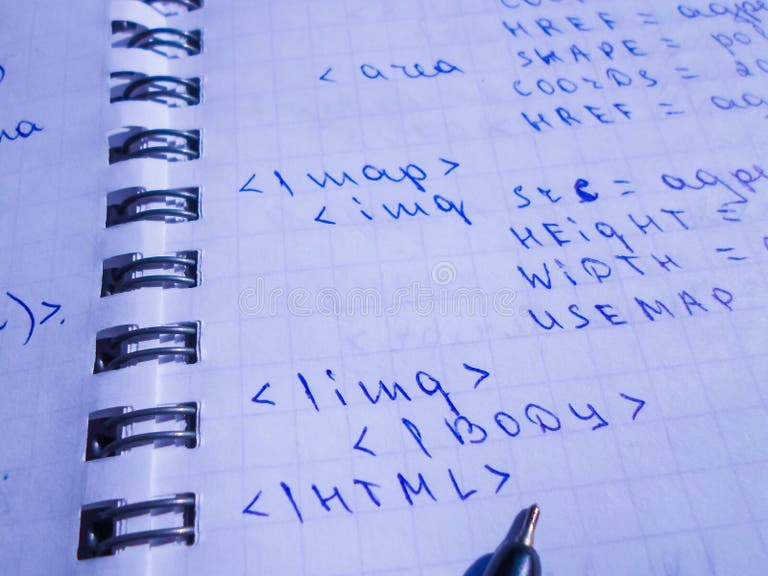 HREF = адре
SHAPE = po
<area COORDS = 20
HREF = ад
</map>
<img src = адре
HEIGHT =
WIDTH =
USEMAP
</img>
</BODY>
</HTML>
на
)>.
dreamstime